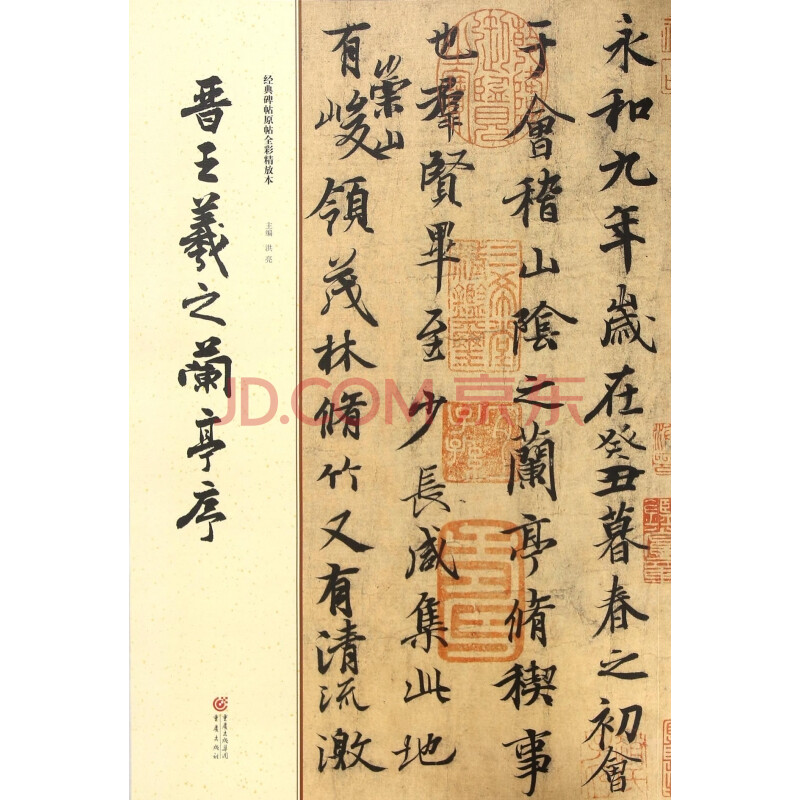 经典碑帖原帖全彩精放本
晋王羲之蘭亭序
主编 洪亮
重庆出版集团
重庆出版社
永和九年歲在癸丑暮春之初會
于會稽山陰之蘭亭脩稧事
也羣賢畢至少長咸集此地
有崇山峻領茂林脩竹又有清流激
JD.COM 京东